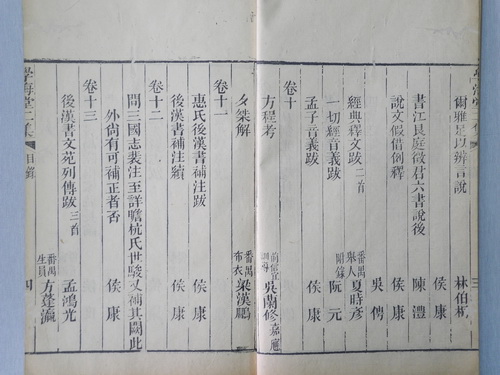 爾雅足以辨言說 林伯桐
侯康
書江艮庭徵君六書說後 陳澧
說文假借例釋
吳俜
經典釋文跋二首 番禺舉人夏時彥
一切經音義跋 附錄 阮元
孟子音義跋 侯康
卷十
方程考 吳蘭修 嘉應
夕桀解 番禺布衣 梁漢鵬
卷十一
惠氏後漢書補注跋 侯康
後漢書補注續 侯康
卷十二
問三國志裴注至詳贍杭氏世駿又補其闕此
外尚有可補正者否 侯康
卷十三
後漢書文苑列傳跋三首 孟鴻光
番禺生員 方蓬瀛
學海堂二集 目錄 四